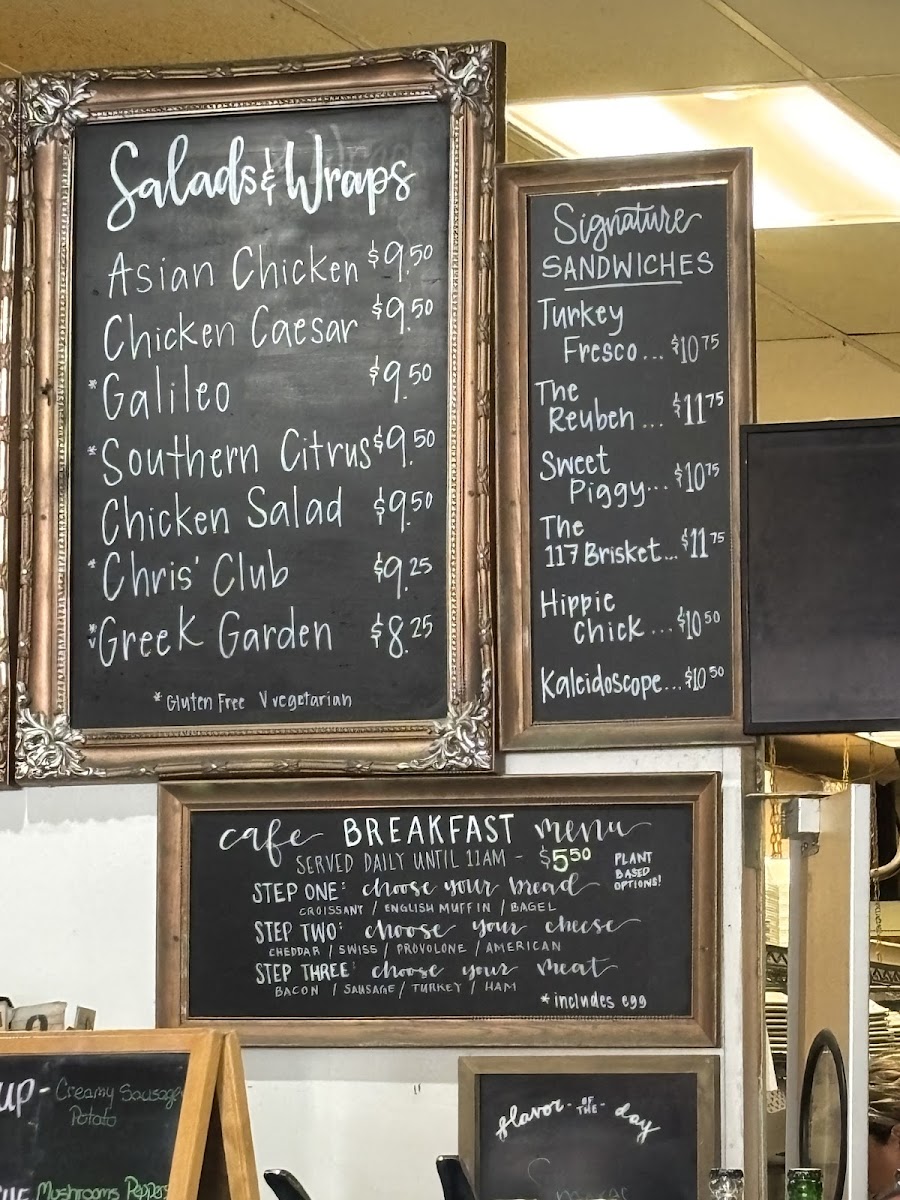 Salads & Wraps
Asian Chicken $9.50
Chicken Caesar $9.50
*Galileo $9.50
*Southern Citrus $9.50
Chicken Salad $9.50
*Chris' Club $9.25
*vGreek Garden $8.25
*Gluten Free V vegetarian
Signature
SANDWICHES
Turkey
Fresco... $10.75
The
Reuben... $11.75
Sweet
Piggy... $10.75
The
117 Brisket... $11.75
Hippie
Chick... $10.50
Kaleidoscope... $10.50
cafe BREAKFAST menu
SERVED DAILY UNTIL 11AM - $5.50
PLANT
BASED
OPTIONS!
STEP ONE: choose your bread
CROISSANT / ENGLISH MUFFIN / BAGEL
STEP TWO: choose your cheese
CHEDDAR / SWISS / PROVOLONE / AMERICAN
STEP THREE: choose your meat
BACON / SAUSAGE / TURKEY / HAM
*includes egg
up - Creamy Sausage
Potato
Mushrooms Peppers
flavor - OF THE - day